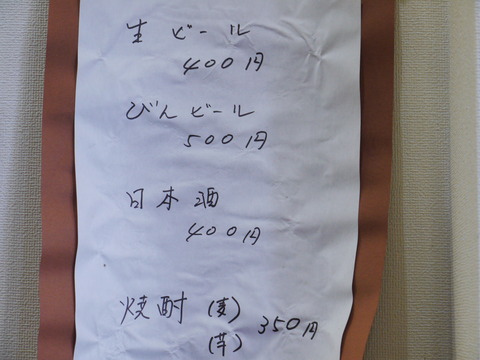 生ビール
400円
びんビール
500円
日本酒
400円
焼酎(麦) 350円
(芋)